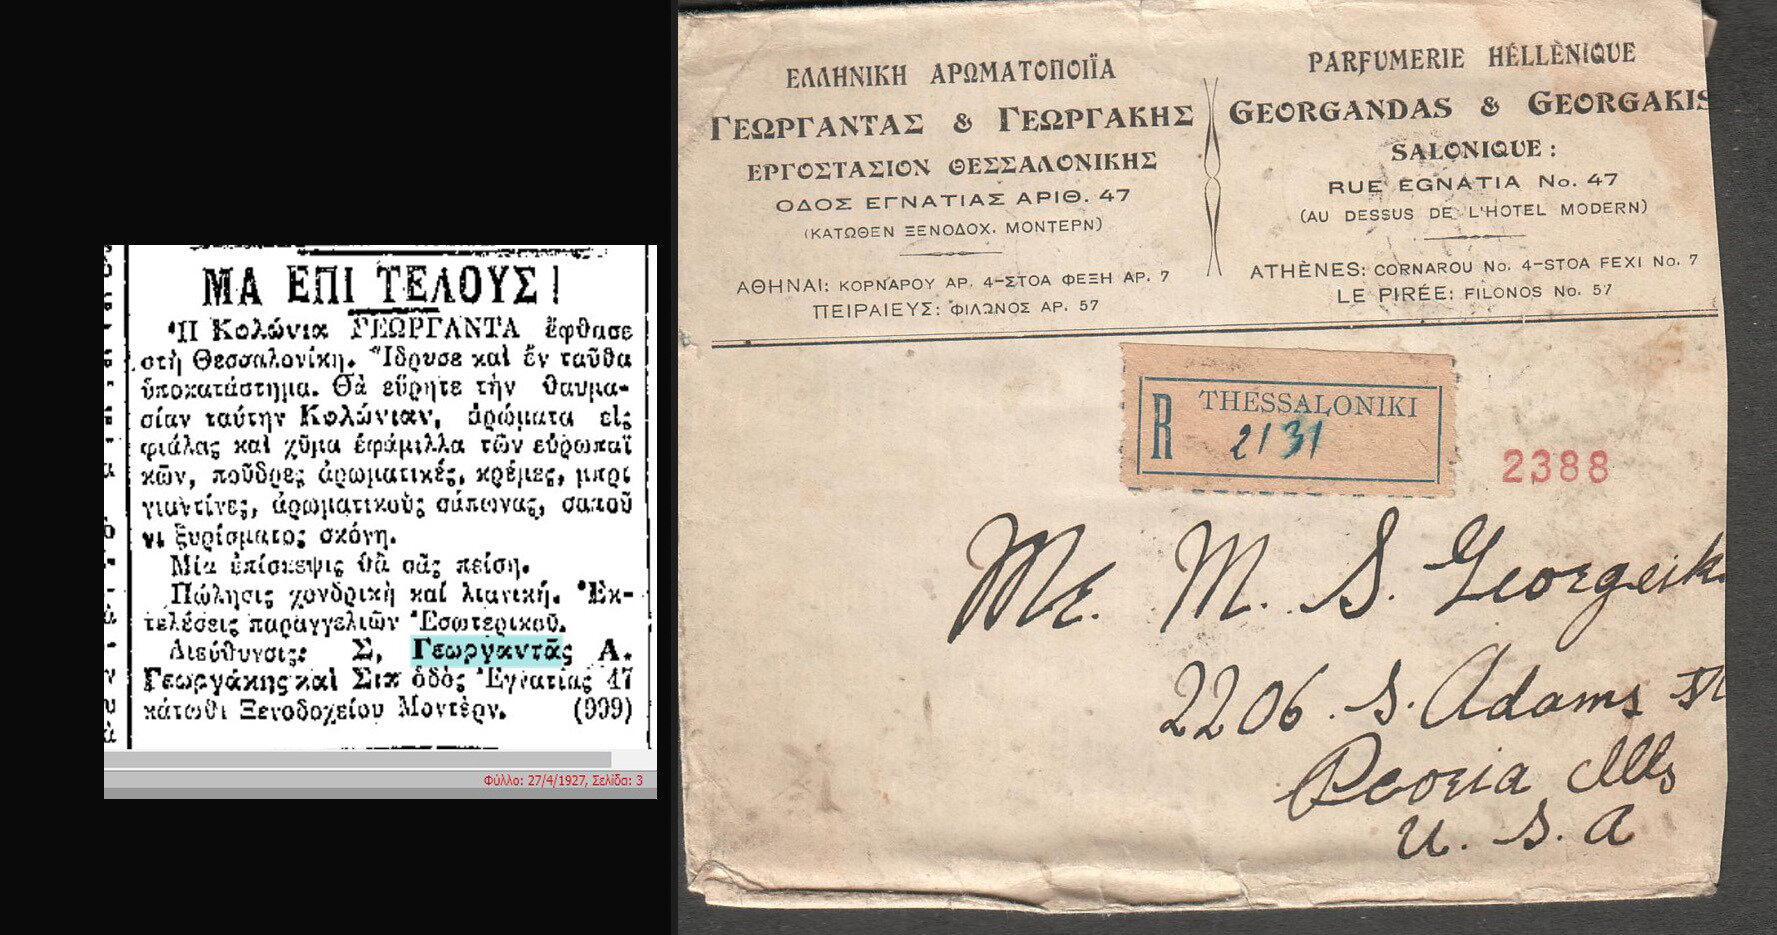 ΜΑ ΕΠΙ ΤΕΛΟΥΣ!
Ἡ Κολώνια ΓΕΩΡΓΑΝΤΑ ἔφθασε
στὴ Θεσσαλονίκη. Ἵδρυσε καὶ ἐν ταῦθα
ὑποκατάστημα. Θὰ εὕρητε τὴν θαυμα-
σίαν ταύτην Κολώνιαν, ἀρώματα εἰς
φιάλας καὶ χῦμα ἐφάμιλλα τῶν εὐρωπαϊ
κῶν, ποῦδρες ἀρωματικές, κρέμες, μπρι
γιαντίνες, ἀρωματικοὺς σάπωνας, σαποῦ
νι ξυρίσματος σκόνη.
Μία ἐπίσκεψις θὰ σᾶς πείση.
Πώλησις χονδρικὴ καὶ λιανική. Ἐκ-
τελέσεις παραγγελιῶν Ἐσωτερικοῦ.
Διεύθυνσις: Σ, Γεωργαντᾶς Α.
Γεωργάκης καὶ Σια ὁδὸς Ἐγνατίας 47
κάτωθι Ξενοδοχείου Μοντέρν. (999)
Φύλλο: 27/4/1927, Σελίδα: 3
ΕΛΛΗΝΙΚΗ ΑΡΩΜΑΤΟΠΟΙΪΑ
ΓΕΩΡΓΑΝΤΑΣ & ΓΕΩΡΓΑΚΗΣ
ΕΡΓΟΣΤΑΣΙΟΝ ΘΕΣΣΑΛΟΝΙΚΗΣ
ΟΔΟΣ ΕΓΝΑΤΙΑΣ ΑΡΙΘ. 47
(ΚΑΤΩΘΕΝ ΞΕΝΟΔΟΧ. ΜΟΝΤΕΡΝ)
ΑΘΗΝΑΙ: ΚΟΡΝΑΡΟΥ ΑΡ. 4-ΣΤΟΑ ΦΕΞΗ ΑΡ. 7
ΠΕΙΡΑΙΕΥΣ: ΦΙΛΩΝΟΣ ΑΡ. 57
PARFUMERIE HELLÈNIQUE
GEORGANDAS & GEORGAKIS
SALONIQUE:
RUE EGNATIA No. 47
(AU DESSUS DE L'HOTEL MODERN)
ATHÈNES: CORNAROU No. 4-STOA FEXI No. 7
LE PIRÉE: FILONOS No. 57
R THESSALONIKI
2131
2388
Mr. M. S. Georgeik
2206. S. Adams St
Peoria Ills
U. S. A